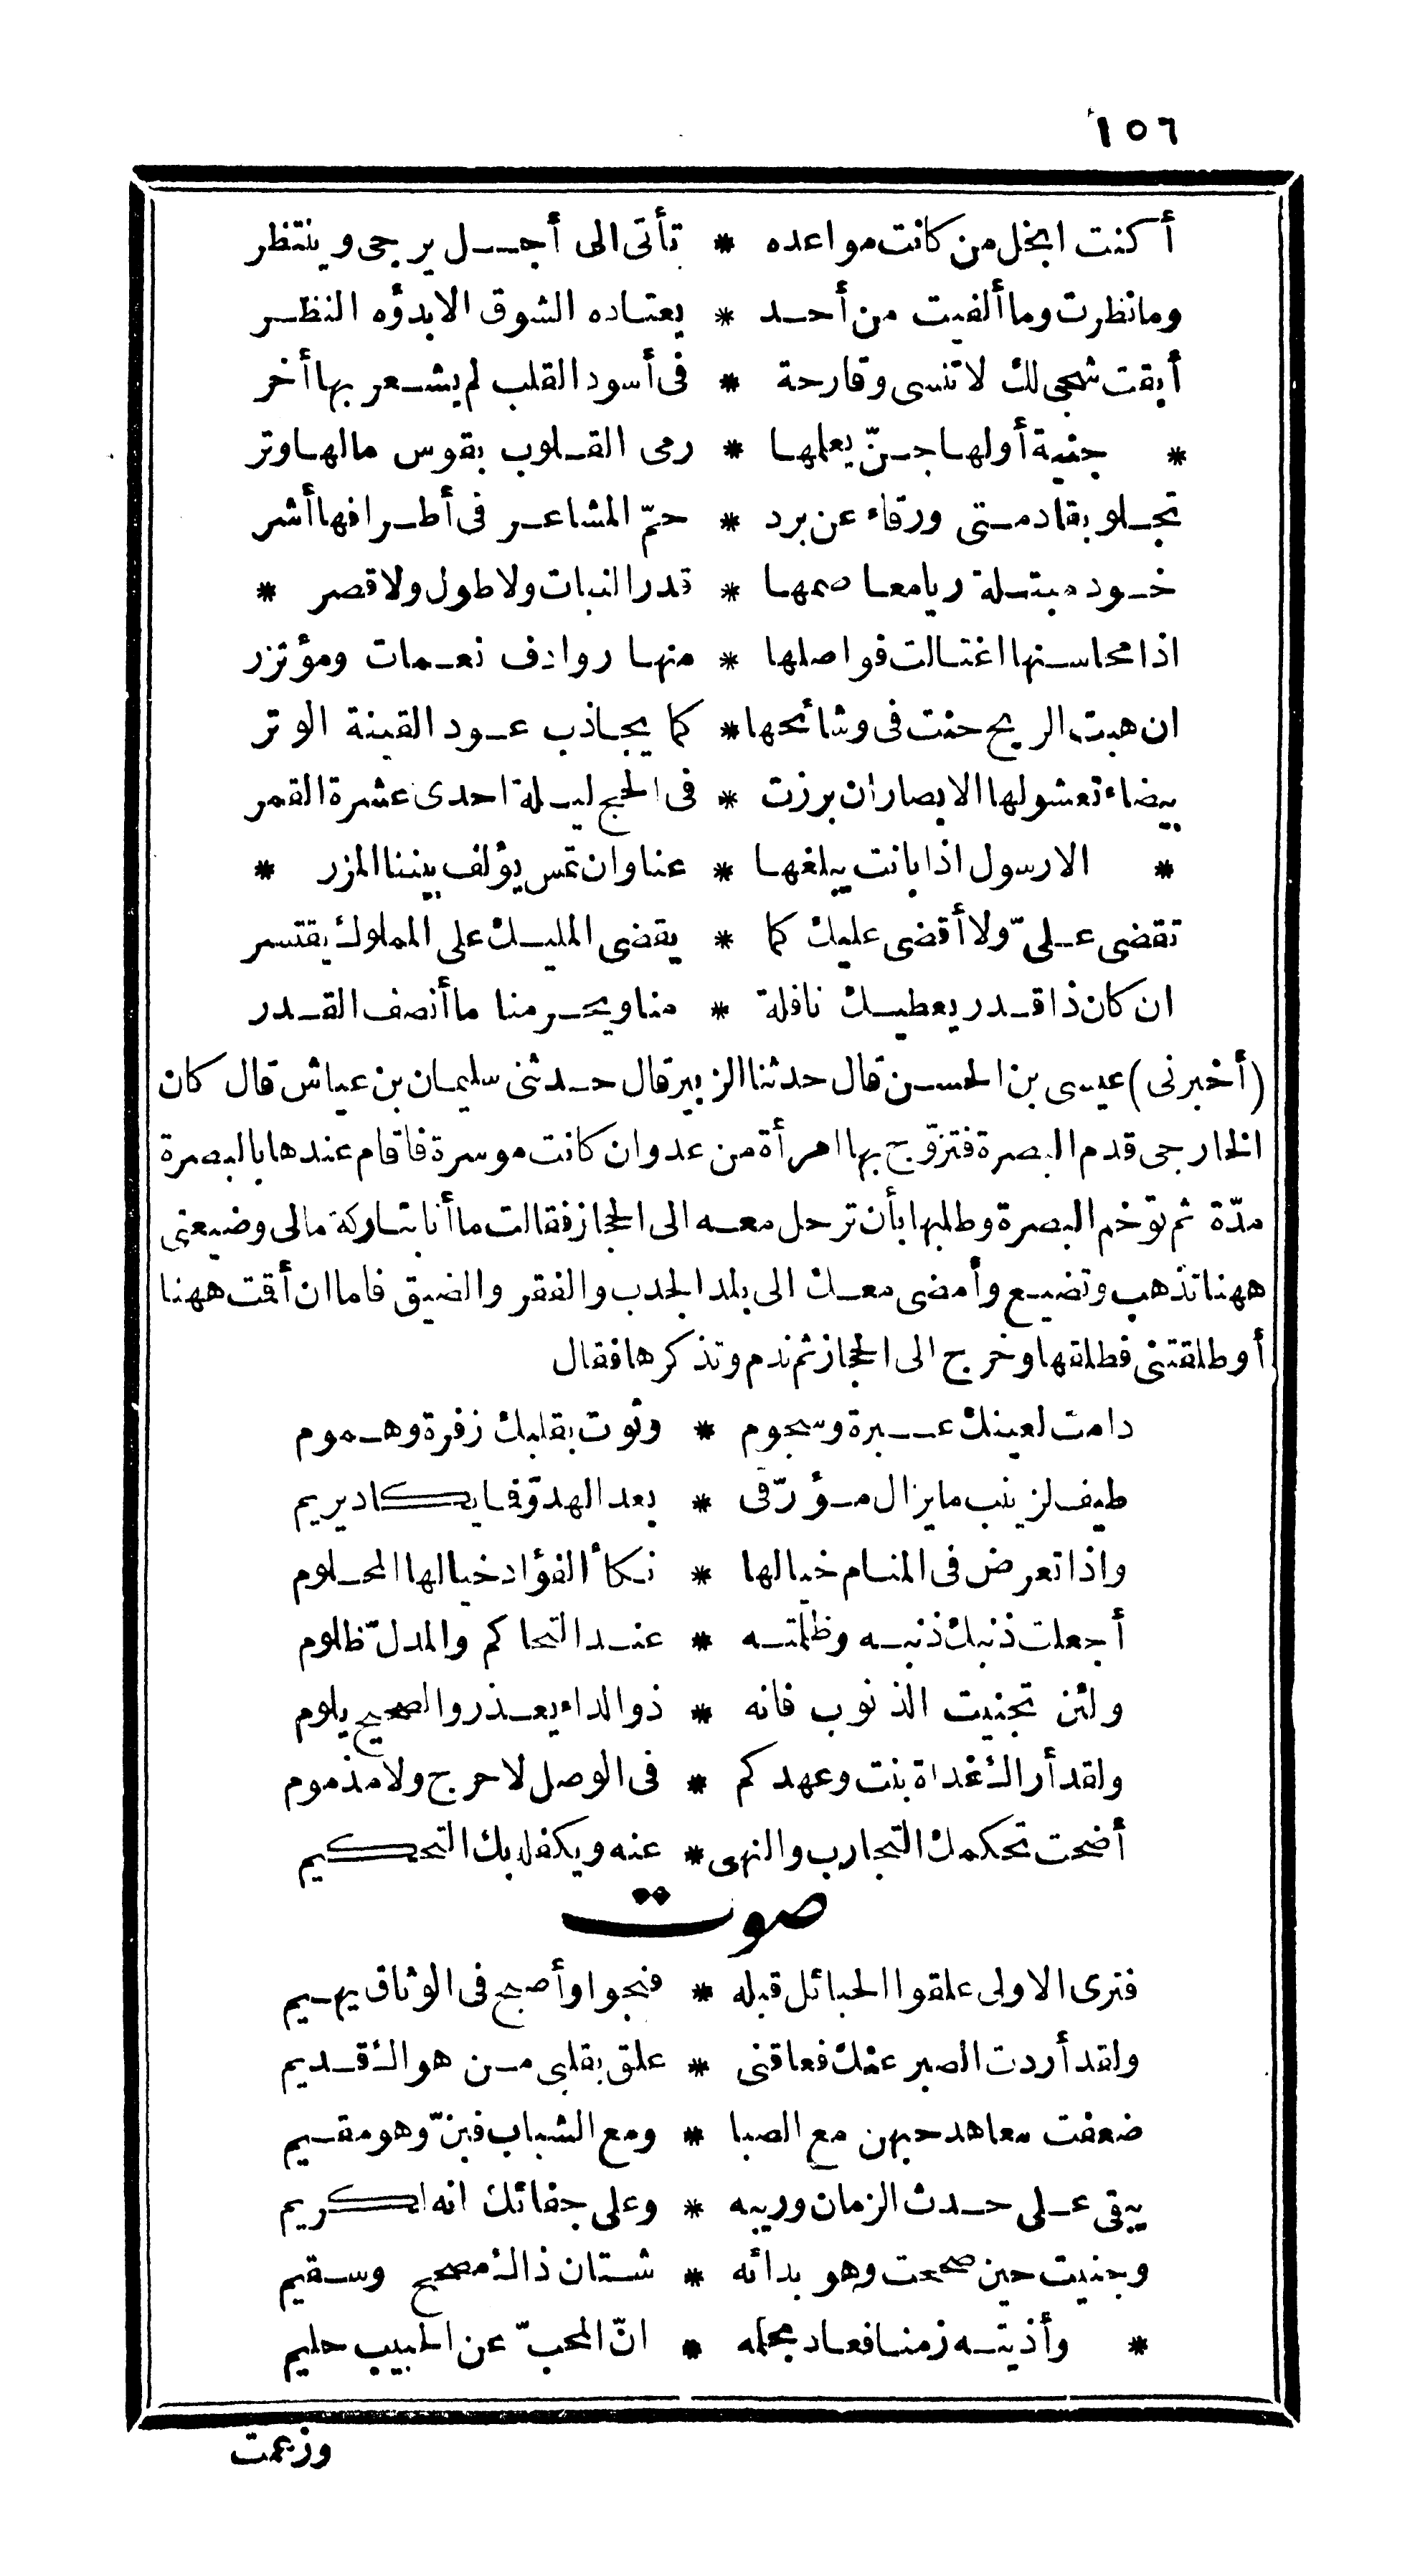 ١٥٦
أكنت ابخل من كانت مواعده * تأتى الى أجل يرجى وينتظر
وما نظرت وما ألفيت من أحد * يعتاده الشوق الا بدؤه النظر
أبقت شجى لك لا تنسى وقارحة * فى أسود القلب لم يشعر بها أخر
* جنية أولها جنّ يعلمها * رمى القلوب بقوس مالها وتر
تجلو بقادمتى ورقاء عن برد * حمّ المشاعر فى أطرافها أشر
خود مبتلة ريا معاصمها * قدر النبات ولا طول ولا قصر *
اذا محاسنها اغتالت فواصلها * منها روادف نعمات ومؤتزر
ان هبت الريح حنت فى وشائحها * كما يجاذب عود القينة الوتر
بيضاء تعشو لها الابصار ان برزت * فى الحج ليلة احدى عشرة القمر
* الا رسول اذا بانت يبلغها * عنا وان تمس يؤلف بيننا المزر *
تقضى علىّ ولا أقضى عليك كما * يقضى المليك على المملوك يقتسر
ان كان ذا قدر يعطيك نافلة * منا ويحرمنا ما أنصف القدر
(أخبرنى) عيسى بن الحسن قال حدثنا الزبير قال حدثنى سليمان بن عياش قال كان
الخارجى قدم البصرة فتزوّج بها امرأة من عدوان كانت موسرة فاقام عندها بالبصرة
مدّة ثم توخم البصرة وطلبها بأن ترحل معه الى الحجاز فقالت ما أنا بتاركة مالى وضيعتى
ههنا تذهب وتضيع وأمضى معك الى بلد الجدب والفقر والضيق فاما ان أقت ههنا
أو طلقتنى فطلقها وخرج الى الحجاز ثم ندم وتذكرها فقال
دامت لعينك عبرة وسجوم * وثوت بقلبك زفرة وهموم
طيف لزينب ما يزال مؤرّقى * بعد الهدوّ فما يكاد يريم
واذا تعرض فى المنام خيالها * نكأ الفؤاد خيالها المحلوم
أجعلت ذنبك ذنبه وظلمته * عند التحاكم والمدلّ ظلوم
ولئن تجنيت الذنوب فانه * ذو الداء يعذر والصحيح يلوم
ولقد أراك غداة بنت وعهدكم * فى الوصل لا حرج ولا مذموم
أضحت تحكمك التجارب والنهى * عنه ويكفله بك التحكيم
صوت
فترى الاولى علقوا الحبائل قبله * فنجوا وأصبح فى الوثاق يهيم
ولقد أردت الصبر عنك فعاقنى * علق بقلبى من هواك قديم
ضعفت معاهد حبهن مع الصبا * ومع الشباب فبنّ وهو مقيم
يبقى على حدث الزمان وريبه * وعلى جفائك انه لكريم
وجنيت حين صححت وهو بدائه * شتان ذاك مصحح وسقيم
* وأذيته زمنا فعاد بحلمه * انّ المحبّ عن الحبيب حليم
وزعمت